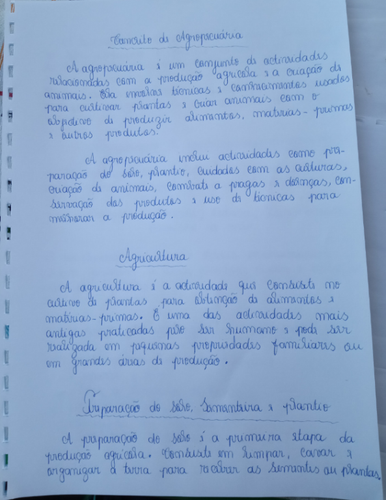 Conceito de Agropecuária
A agropecuária é um conjunto de actividades
relacionadas com a produção agrícola e a criação de
animais. Ela envolve técnicas e conhecimentos usados
para cultivar plantas e criar animais com o
objetivo de produzir alimentos, matérias-primas
e outros produtos.
A agropecuária inclui actividades como pre-
paração do solo, plantio, cuidados com as culturas,
criação de animais, combate a pragas e doenças, con-
servação dos produtos e uso de técnicas para
melhorar a produção.
Agricultura
A agricultura é a actividade que consiste no
cultivo de plantas para obtenção de alimentos e
matérias-primas. É uma das actividades mais
antigas praticadas pelo ser humano e pode ser
realizada em pequenas propriedades familiares ou
em grandes áreas de produção.
Preparação do solo, sementeira e plantio
A preparação do solo é a primeira etapa da
produção agrícola. Consiste em limpar, cavar e
organizar a terra para receber as sementes ou plantas